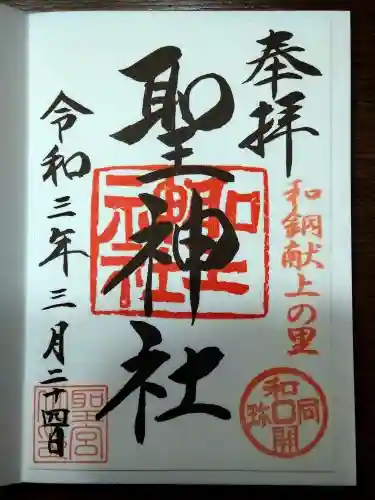 奉拝
和銅献上の里
和同開珎
聖神社
聖神社
令和三年三月二十四日